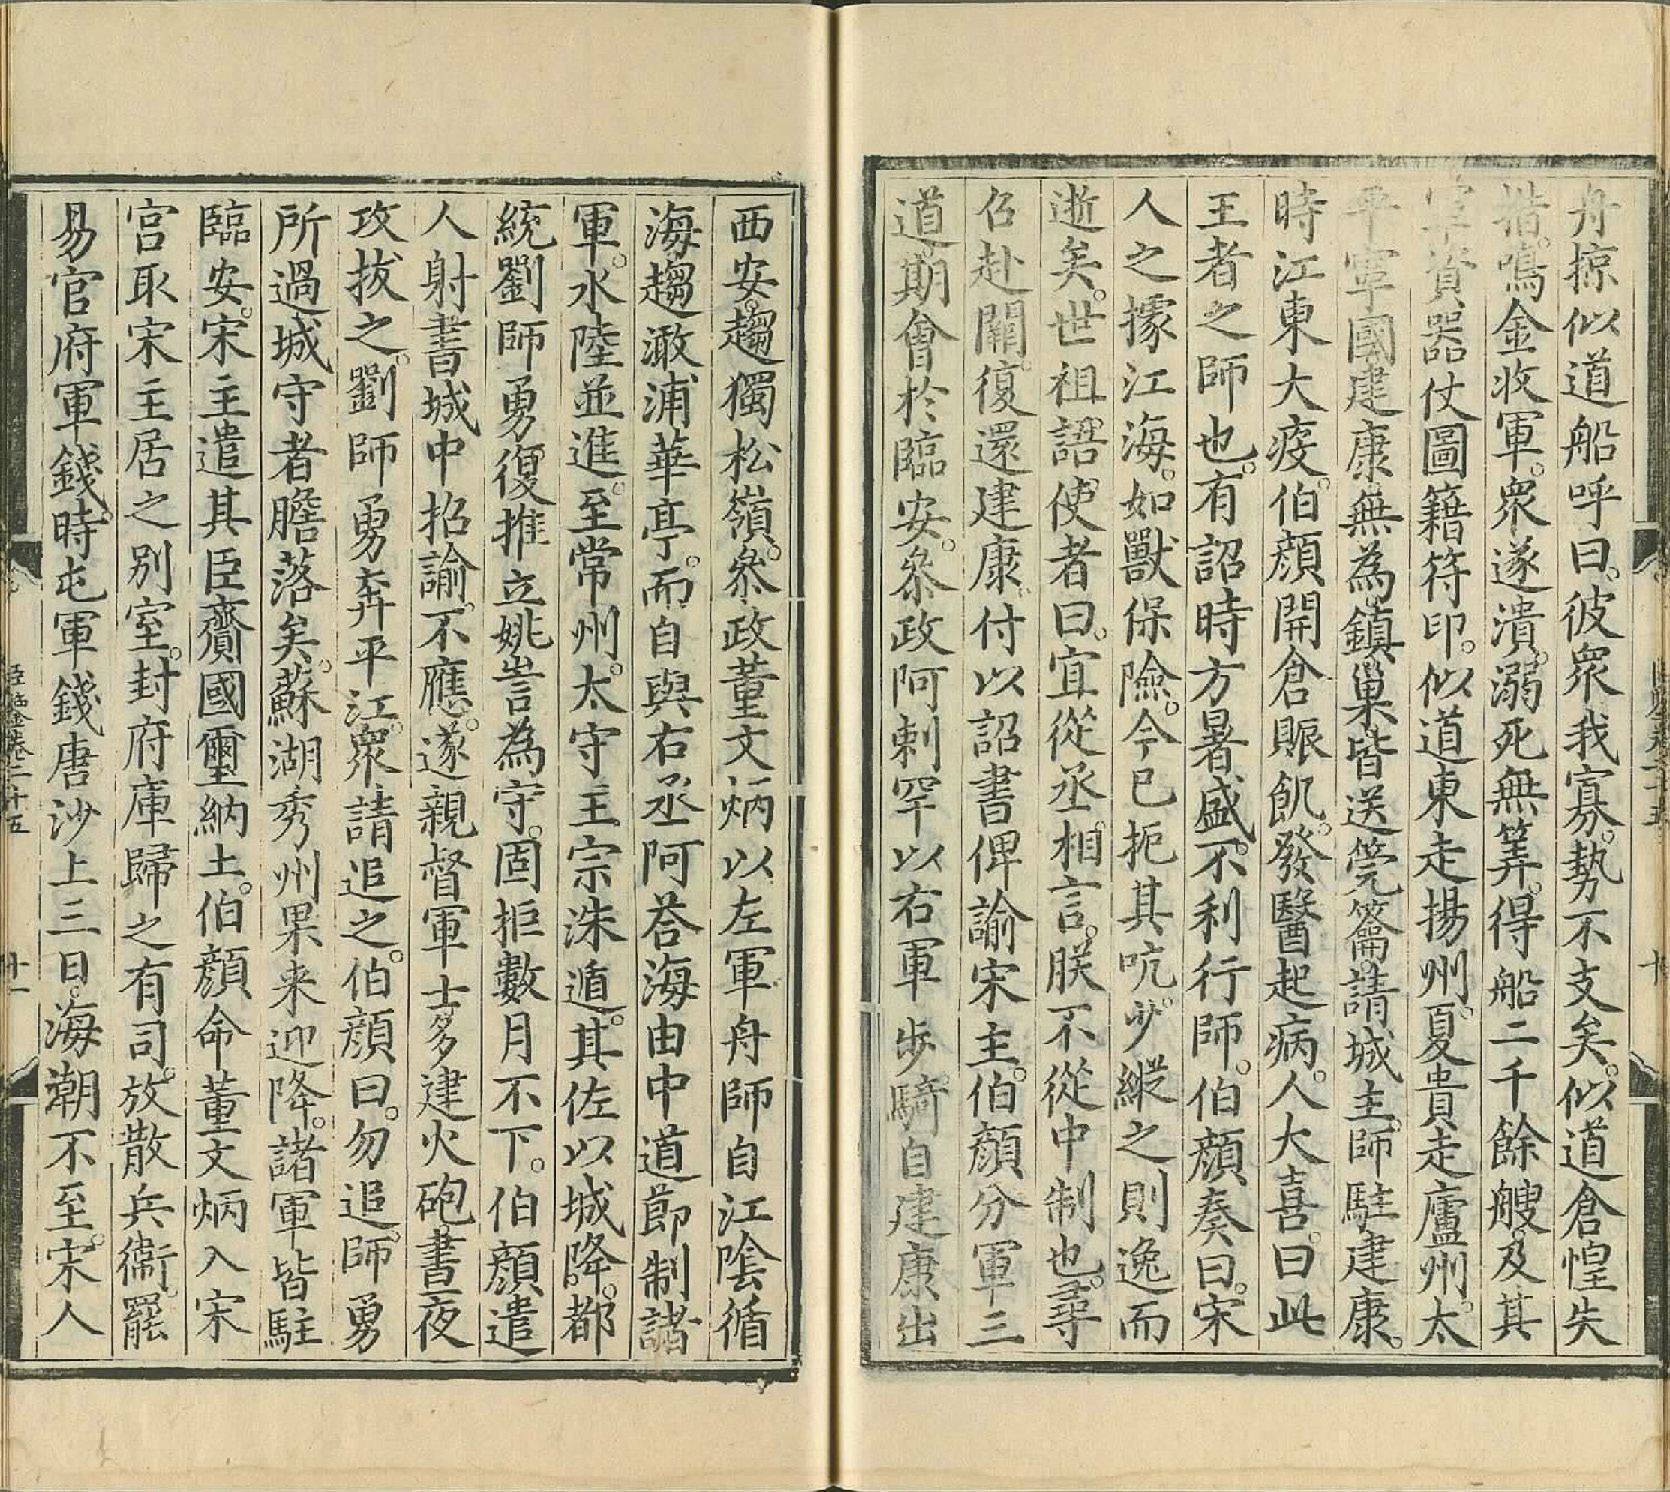 舟掠似道船呼曰。彼衆我寡。勢不支矣。似道倉惶失
措。鳴金收軍。衆遂潰。溺死無筭。得船二千餘艘。及其
軍資器仗圖籍符印。似道東走揚州。夏貴走廬州。太
平軍國建康。無為鎮巢。皆送筦籥。請城主。師駐建康。
時江東大疫。伯顔開倉賑飢。發醫起病。人大喜。曰此
王者之師也。有詔時方暑盛。不利行師。伯顔奏曰。宋
人之據江海。如獸保險。今已扼其吭。少縱之則逸而
逝矣。世祖語使者曰。宜從丞相言。朕不從中制也。尋
召赴闕。復還建康。付以詔書俾諭宋主。伯顔分軍三
道。期會於臨安。叅政阿剌罕以右軍步騎自建康出
西安。趨獨松嶺。叅政董文炳以左軍舟師自江陰循
海趨澉浦華亭。而自與右丞阿荅海由中道節制諸
軍。水陸並進。至常州。太守王宗洙遁。其佐以城降。都
統劉師勇復推立姚訔為守。固拒數月不下。伯顔遣
人射書城中招諭。不應。遂親督軍士多建火砲。晝夜
攻拔之。劉師勇奔平江。衆請追之。伯顔曰。勿追。師勇
所過城守者膽落矣。蘇湖秀州果来迎降。諸軍皆駐
臨安。宋主遣其臣齎國璽納土。伯顔命董文炳入宋
宮取宋主居之别室。封府庫歸之有司。放散兵衞。罷
易官府軍錢時屯軍錢唐沙上三日。海潮不至。宋人